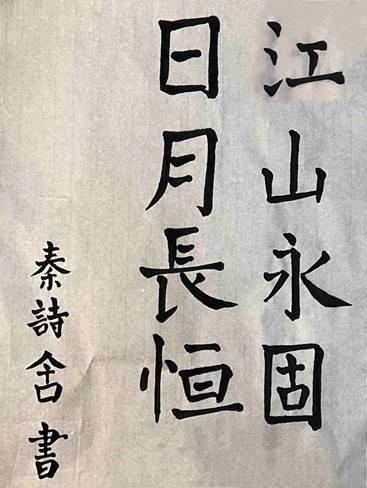 江山永固
日月長恒
秦詩舍書